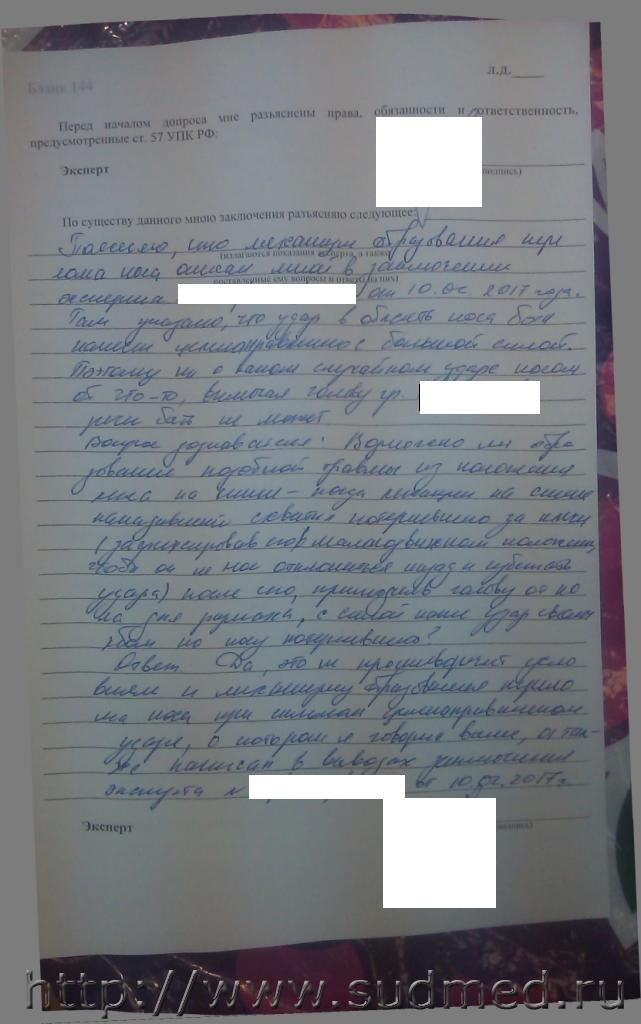 Бланк 144
Л.Д.____
Перед началом допроса мне разъяснены права, обязанности и ответственность,
предусмотренные ст. 57 УПК РФ:
Эксперт
подпись)
По существу данного мною заключения разъясняю следующее:
Поясняю, что механизм образования пере
(излагаются показания эксперта, а также
лома носа описан мной в заключении
поставленные ему вопросы и ответы на них)
эксперта от 10. 2017 года.
Там указано, что удар в область носа был
нанесен целенаправленно с большой силой.
Поэтому ни о каком случайном ударе носом
об что-то, включая голову гр.
речи быть не может.
Вопрос дознавателя: Возможно ли обра
зование подобной травмы из положения
лежа на спине – когда лежащий на спине
схватил потерпевшего за плечи
(зафиксировав его в малоподвижном положении,
чтобы он не мог отклониться назад и избежать
удара) после чего, приподняв голову от по
ла для размаха, с силой нанес удар своим
лбом по носу потерпевшего?
Ответ. Да, это не противоречит усло
виям и механизму образования перело
ма носа при сильном целенаправленном
ударе, о котором я говорил выше, а так-
же написал в выводах заключения
эксперта № от 10. 2017 г.
Эксперт
подпись)
http://www.sudmed.ru